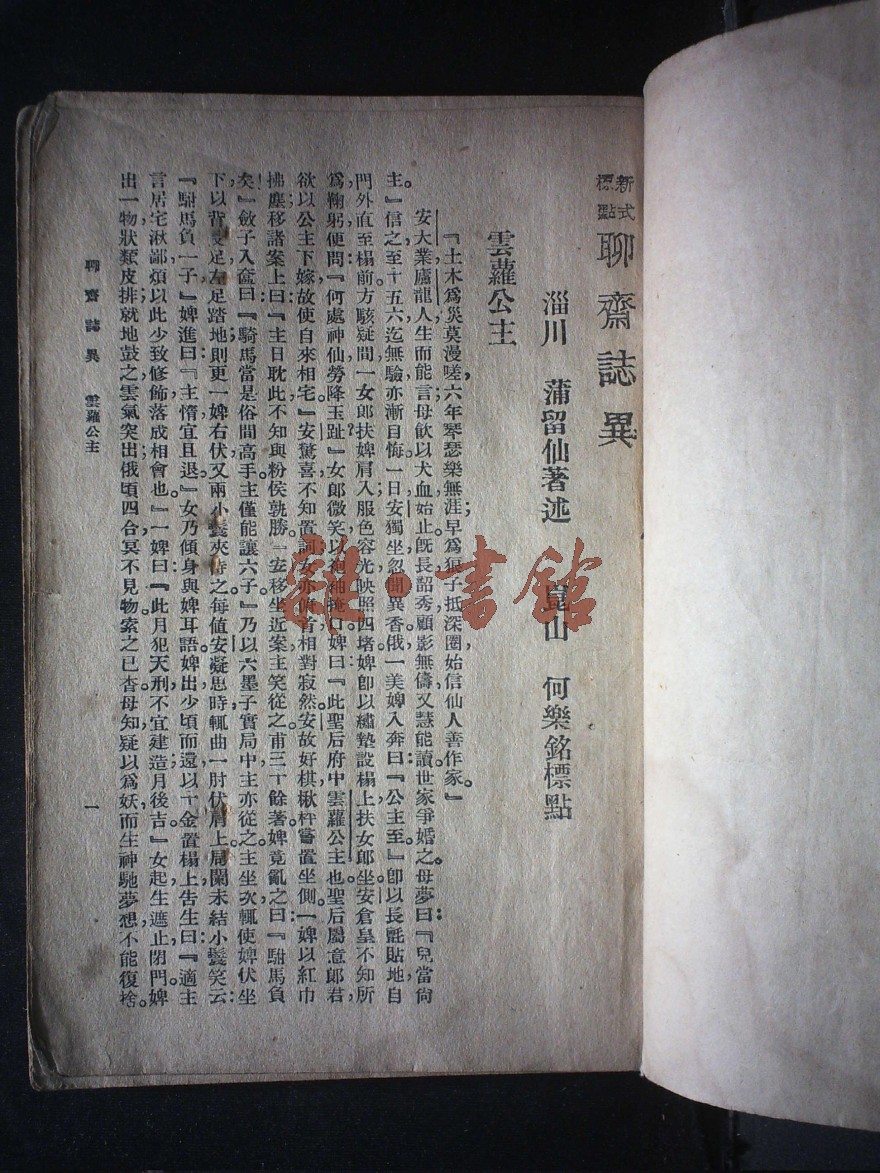 新式標點 聊齋誌異
淄川 蒲留仙著述 崑山 何樂銘標點
雲蘿公主
『土木爲災莫漫嗟，六年琴瑟樂無涯；早爲狼子抵深圈，始信仙人善作家。』
安大業，盧龍人，生而能言，母飲以犬血，始止。旣長，韶秀，顧影無儔；又慧，能讀。世家爭婚之。母夢曰：『兒當尙
主。』信之。至十五六，迄無驗，亦漸自悔。一日，安獨坐，忽聞異香。俄一美婢入，奔曰：『公主至。』卽以長氈貼地，自
門外直至榻前。方駭疑間，一女郎扶婢肩入；服色容光，映照四堵。婢卽以繡墊設榻上，扶女郎坐。安倉皇不知所
爲，鞠躬便問：『何處神仙，勞降玉趾？』女郎微笑，以袍袖掩口。婢曰：『此聖后府中雲蘿公主也。聖后屬意郎君，
欲以公主下嫁，故使自來相宅。』安驚喜，不知置詞；女亦俯首：相對寂然。安故好棋，楸枰嘗置坐側。一婢以紅巾
拂塵，移諸案上，曰：『主日耽此，不知與粉侯孰勝？』安移坐近案，主笑從之。甫三十餘著，婢竟亂之，曰：『駙馬負
矣！』斂子入奩，曰：『駙馬當是俗間高手，主僅能讓六子。』乃以六墨子實局中，主亦從之。主坐次，輒使婢伏坐
下，以背受足；左足踏地，則更一婢右伏。又兩小鬟夾侍之；每値安凝思時，輒曲一肘伏肩上。局闌未結，小鬟笑云：
『駙馬負一子。』婢進曰：『主惰，宜且退。』女乃傾身與婢耳語。婢出，少頃而還，以千金置榻上，告生曰：『適主
言居宅湫鄙，煩以此少致修飾，落成相會也。』一婢曰：『此月犯天刑，不宜建造；月後吉。』女起；生遮止，閉門。婢
出一物，狀類皮排，就地鼓之；雲氣突出，俄頃四合，冥不見物，索之已杳。母知，疑以爲妖。而生神馳夢想，不能復捨。
聊齋誌異 雲蘿公主 一
雜·書館